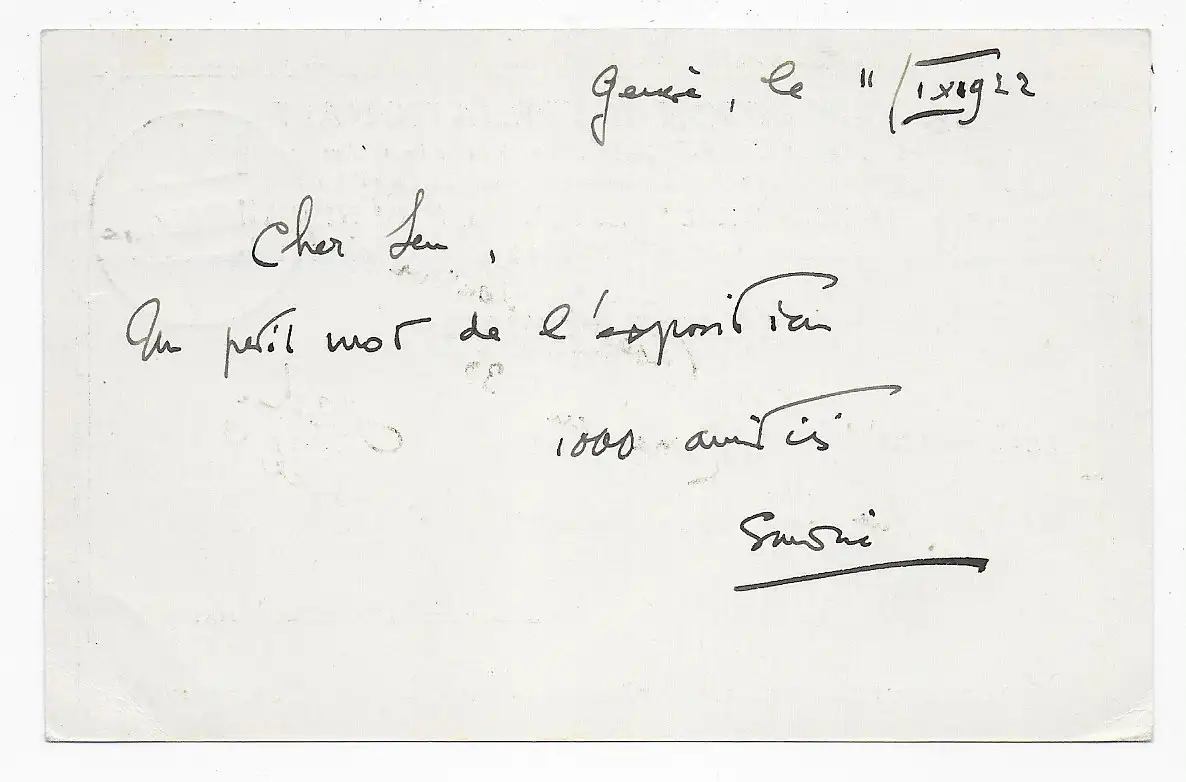 Genève, le 11/IX1922
Cher
Un petit mot de l'exposition
1000 amitiés